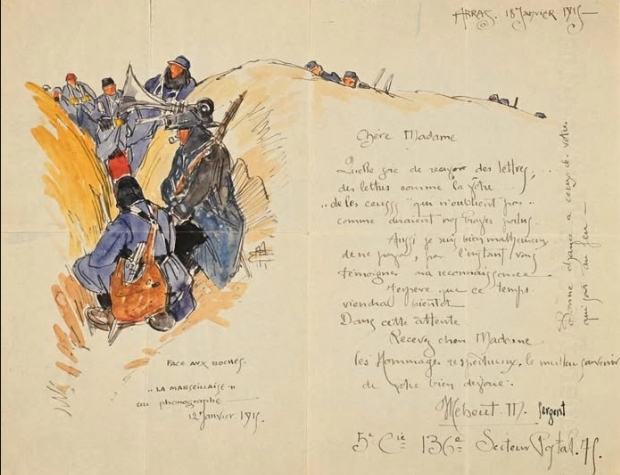 Arras. 18 Janvier 1915
Chère Madame
Quelle joie de recevoir des lettres,
des lettres comme la vôtre
" de les " qui n'oublient pas "
comme diraient nos
Aussi je suis bien malheureux
de ne , pour l'instant vous
témoigner ma reconnaissance
J'espère que ce temps
viendra bientôt
Dans cette attente
Recevez chère Madame
les Hommages respectueux, le meilleur souvenir
de votre bien dévoué.
Mehout M. Sergent
5e Cie 136e Secteur Postal. 75
Bonne chance à ceux de vôtre
qui sont au feu
FACE AUX BOCHES.
" LA MARSEILLAISE "
au phonographe
12 Janvier 1915.